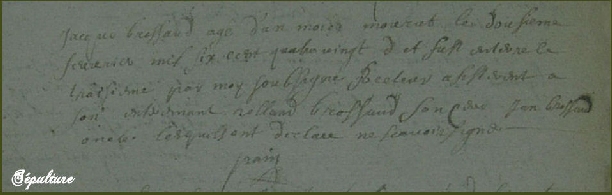 Jacque brossard age d'un mois mourut le dousieme
feuerier mil six cent quatre vingt et fust enterre le
traisieme par moy soubsigne assisterent a
son enterremant rolland brossard son pere Jan brossard
oncle lesquels ont declare ne scauoir signe
Sépulture